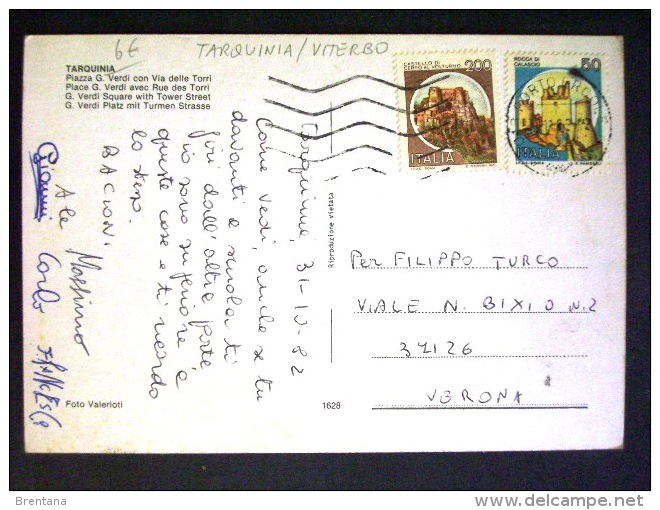 6€
TARQUINIA/VITERBO
TARQUINIA
Piazza G. Verdi con Via delle Torri
Place G. Verdi avec Rue des Torri
G. Verdi Square with Tower Street
G. Verdi Platz mit Turmen Strasse
CASTELLO DI
CERRO AL VOLTURNO
200
ITALIA
ROCCA DI
CALASCIO
50
ITALIA
31-10-82
Come vedi, anche se tu
davanti e scuola ti
giri dall'altra parte
io sono superiore a
queste cose e ti ricordo
lo stesso.
BACIONI
Ale Massimo
Gianni Carlo FRANCESCO
Riproduzione vietata
Per FILIPPO TURCO
VIALE N. BIXIO N.2
37126
VERONA
Foto Valerioti
1628
Brentana
delcampe.net